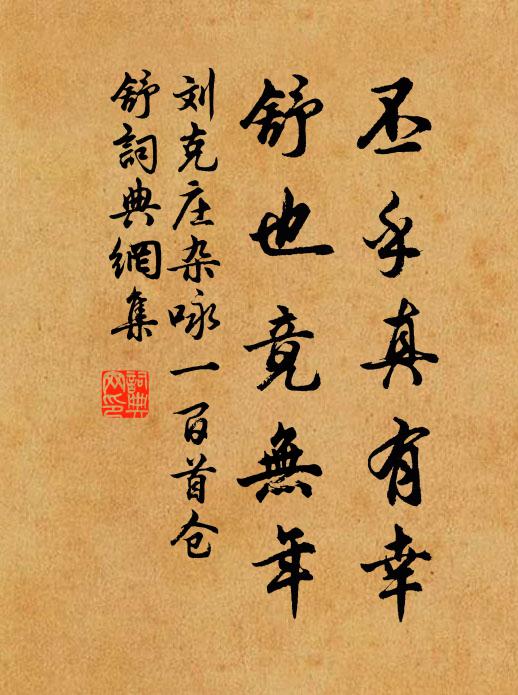 丕乎真有幸
舒也竟無年
刘克庄杂咏一百首仓
舒詞典網集
詞典
网印